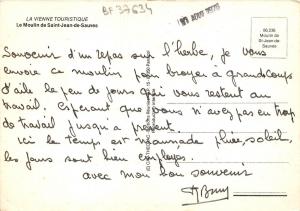 BF 37634
LA VIENNE TOURISTIQUE
Le Moulin de Saint-Jean-de-Sauves
86.236
Moulin de
St-Jean-de
Sauves
Souvenir d'un repas sur l'herbe, je vous
envoie ce moulin pour broyer à grands coups
d'aile le peu de jours qui vous restent au
travail. Espérant que vous n'avez pas eu trop
de travail jusqu'à présent.
Ici le temps est maussade pluie, soleil,
les jours sont bien employés.
avec mon bon souvenir